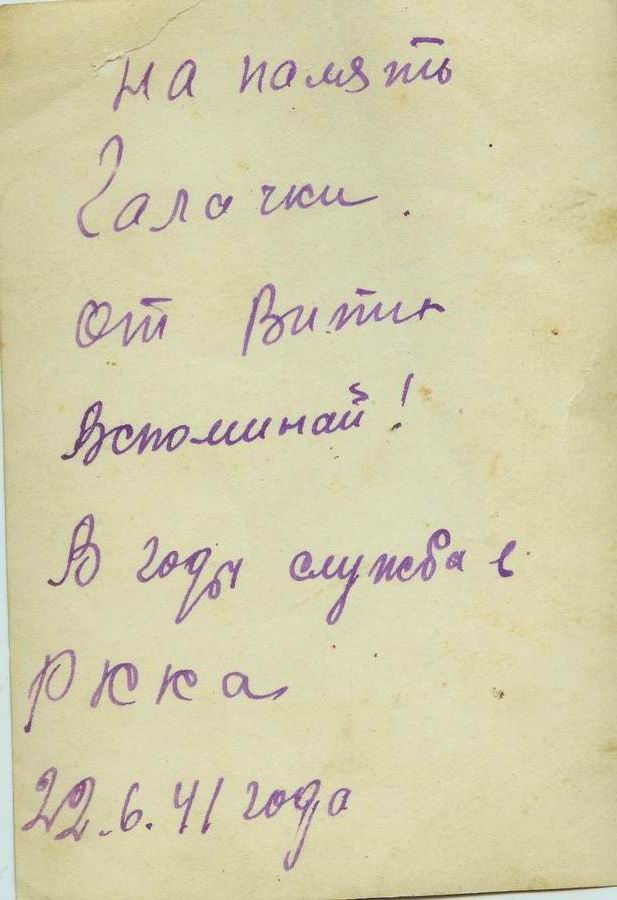 на память
Галочки.
от Вити
Вспоминай!
В годы служба в
Ркка
22.6.41 года